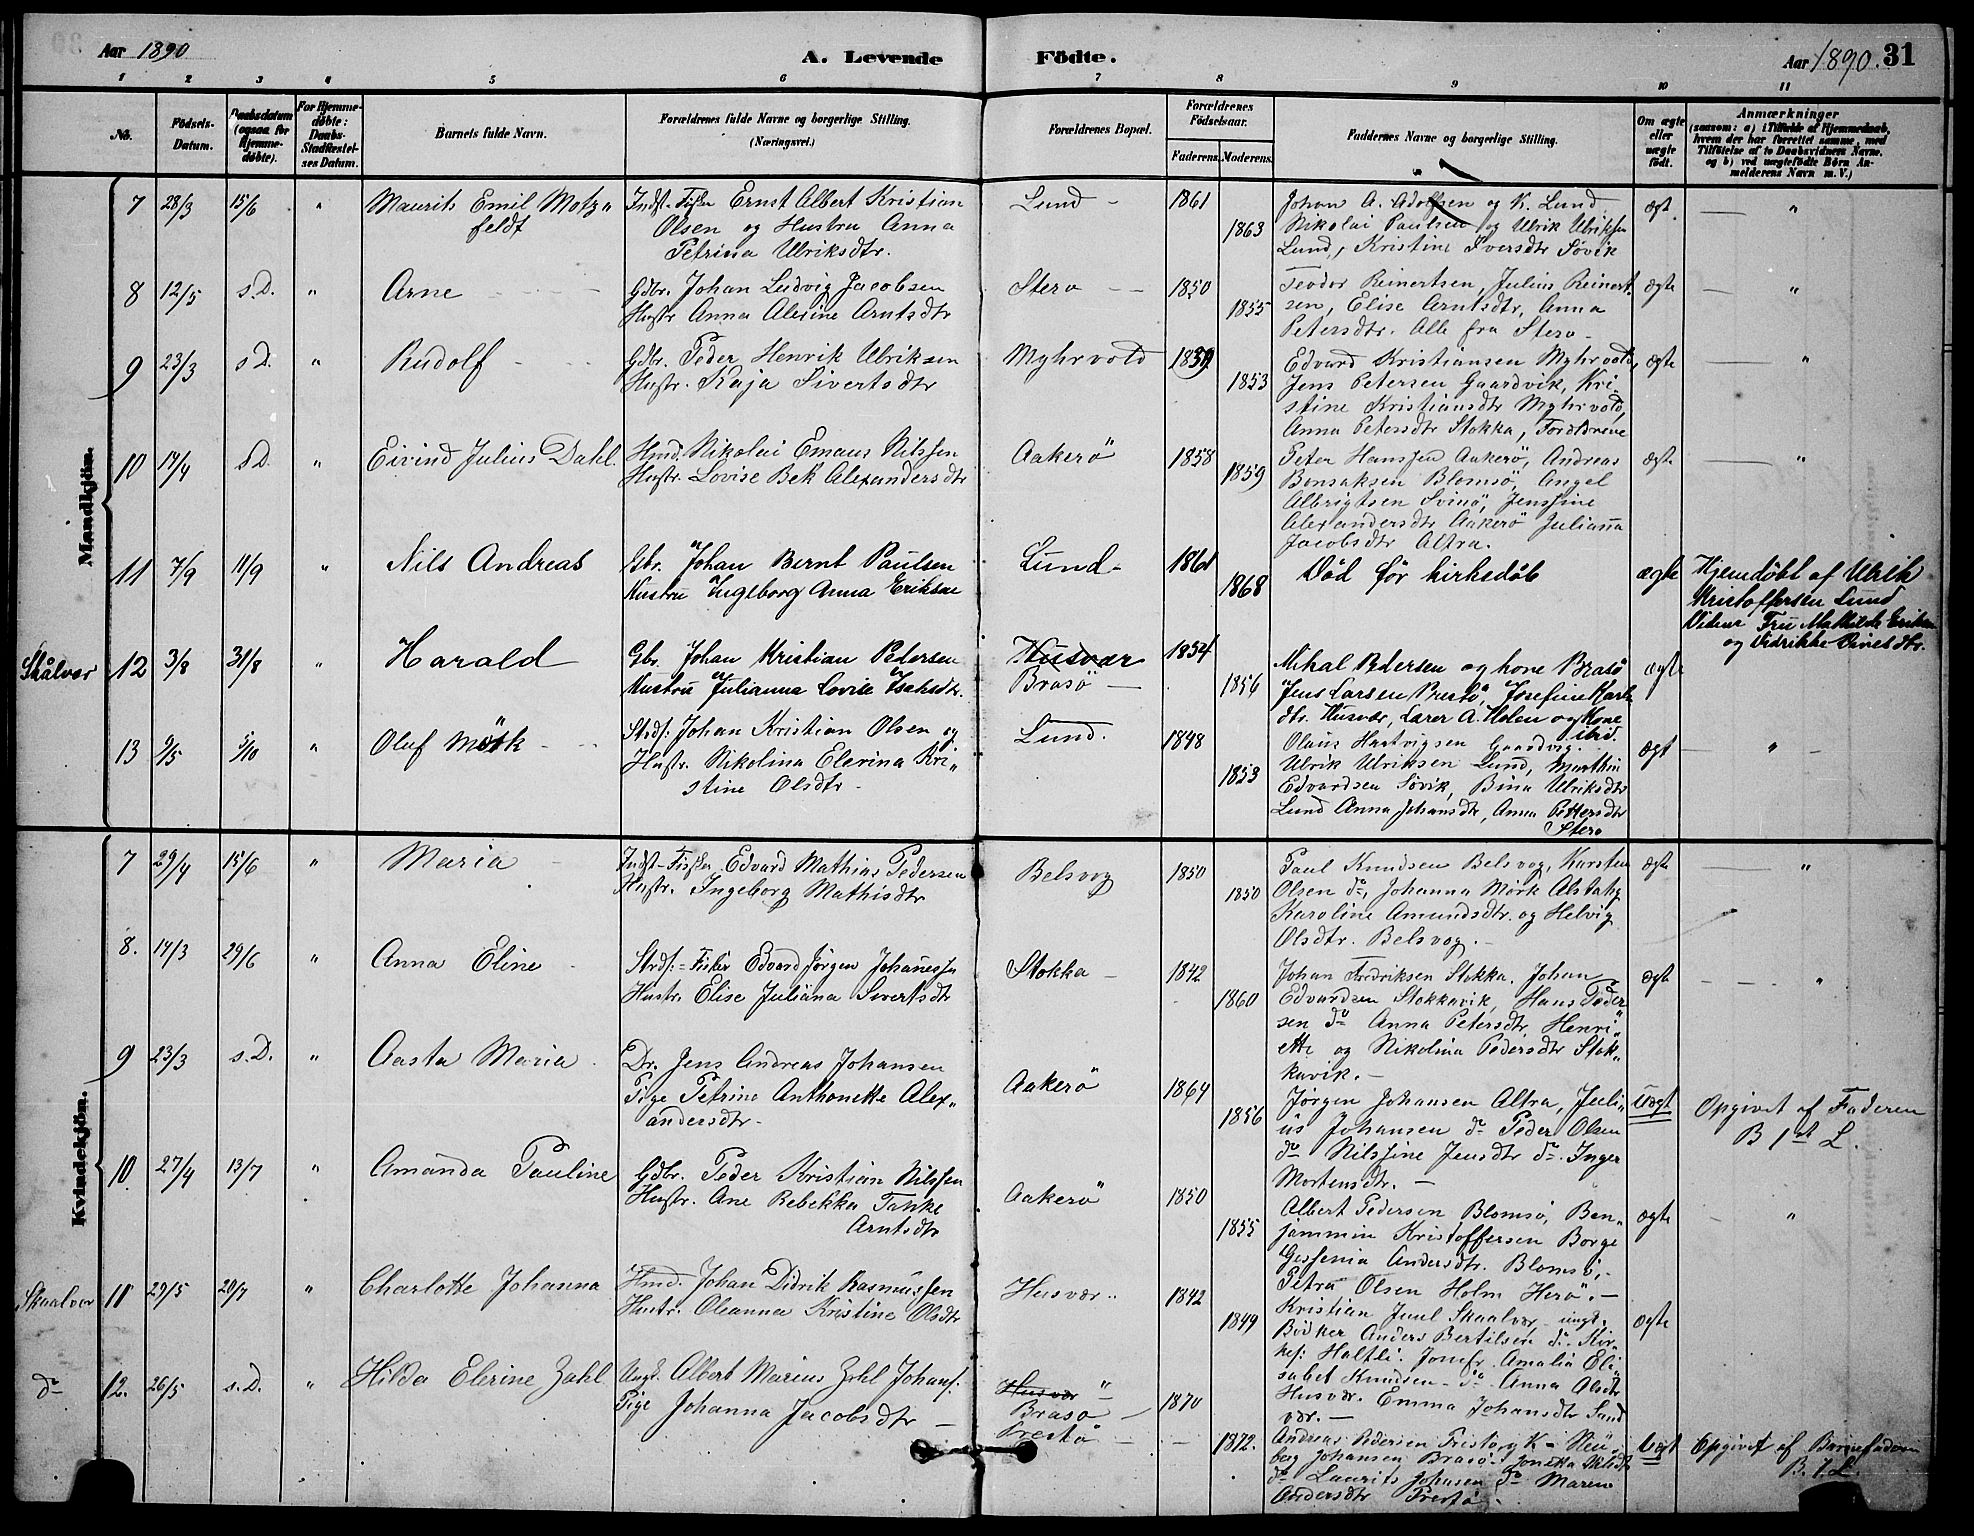 Aar 1890
A. Levende
Fødte.
Aar 1890. 31
1 2 3 4 5 6 7 8 9 10 11
No.
Fødsels-
Datum.
Daabsdatum
(ogsaa for
Hjemme-
døbte).
For Hjemme-
døbte:
Daabs-
Stadfæstel-
ses Datum.
Barnets fulde Navn.
Forældrenes fulde Navne og borgerlige Stilling.
(Næringsvei.)
Forældrenes Bopæl.
Forældrenes
Fødselsaar.
Faderens. Moderens.
Faddernes Navne og borgerlige Stilling.
Om ægte
eller
uægte
født.
Anmærkninger
(saasom: a) i Tilfælde af Hjemmedaab,
hvem der har forrettet samme, med
Tilføielse af to Daabsvidners Navne,
og b) ved uægtefødte Børn An-
melderens Navn m. V.)
Mandkjøn.
7 28/3 15/6 " Maurits Emil Motz„
feldt
Indst. Fisker Ernst Albert Kristian
Olsen og Hustru Anna
Petrina Ulriksdtr.
Lund - 1861 1863
Johan A. Adolfsen og K. Lund
Nikolai Paulsen og Ulrik Ulriksen
Lund, Kristine Iversdtr Søvik
ægt. "
8 12/5 s.D. " Arne
Gdbr. Johan Ludvig Jacobsen
Hustr Anna Alerine Arntsdtr
Stero 1850 1855
Teodor Reinertsen, Julius Reinert„
sen, Elise Arntsdtr, Anna
Petersdtr. Alle fra Stero
ægte "
9 23/3 s.D. " Rudolf
Gdbr. Peder Henrik Ulriksen
Hustr. Kaja Sivertsdtr
Myhrvold 1859 1853
Edvard Kristiansen Myhrvold,
Jens Petersen Gaardvik, Kri„
stine Kristiansdtr Myhrvold,
Anna Petersdtr Stokka, Forældrene
ægte "
10 14/4 s.D. " Eivind Julius Dahl.
Hmd. Nikolai Emaus Nilssen
Hustr. Lovise Bek Alexandersdtr
Aakerö 1858 1859
Peter Hanssen Aakerö, Andreas
Bonsaksen Blomsö, Angel
Albrigtsen Svinö, Jenssine
Alexandersdtr Aakerö Julianna
Jacobsdtr Altra.
ægte "
11 7/9 11/9 " Nils Andreas
Gbr. Johan Bernt Paulsen
Hustru Ingeborg Anna Eriksen
Lund- 1861 1868
Död för kirkedåb
ægte
Hjemdöbt af Ulrik
Kristoffersen Lund
Vidner Fru Mathilde Eriksen
og Vidrikke
Skålvær 12 3/8 31/8 " Harald
Gbr. Johan Kristian Pedersen
Hustru Julianna Lovise Isaksdtr.
Husvær
Brasö 1854 1856
Mikal Pedersen og kone Brasö
Jens Larsen Prestö, Josefine Karls
dtr. Husvær, Lærer A. Helen og Kone
ibid.
ægte
13 9/5 5/10 " Oluf Mörk
Strds. Johan Kristian Olsen og
Hustr. Nikolina Elerina Kri„
stine Olsdtr.
Lund. 1848 1853
Olaus Hartvigsen Gaardvig.
Ulrik Ulriksen Lund, Marthin
Edvardsen Søvik, Bina Ulriksdtr
Lund Anna Johansdtr, Anna Pettersdtr
Stero
ægt "
Kvindekjön.
7 29/4 15/6 " Maria
Indst-Fisker Edvard Mathias Pedersen
Hustr. Ingeborg Mathisdtr
Belsvog 1850 1850
Paul Knudsen Belsvog, Karsten
Olsen do, Johanna Mörk Alstahg
Karoline Amundsdtr. og Helvig
Olsdtr. Belsvog.
ægte "
8. 14/3 29/6 " Anna Eline
Strds:-Fisker Edvard Jörgen Johanessn
Hustr. Elise Juliana Sivertsdtr
Stokka 1842 1860
Johan Fredriksen Stokka. Johan
Edvardsen Stokkavik, Hans Peder
sen do Anna Petersdtr, Henri„
ette og Nikolina Pedersdtr Stok„
kavik.
ægt "
9 23/3 s.D. " Aasta Maria
Dr. Jens Andreas Johansen
Pige Petrine Anthonette Alex„
andersdtr-
Aakerö 1864 1856
Jörgen Johansen Altra, Juli„
us Johansen do Peder Olsen
do Nilssine Jensdtr do. Inger
Mortensdtr.
Uægt
Opgivet af Faderen
B 1st L.
10. 27/4 13/7 " Amanda Pauline
Gdbr. Peder Kristian Nilssen
Hustr. Ane Rebekka Tanke
Arntsdtr
Aakerö 1850 1855
Albert Pedersen Blomsö, Ben„
jammin Kristoffersen Borge
Gessenia Andersdtr. Blomsö,
Petra Olsen Holm Herö.
ægte "
Skaalvær 11 29/5 20/7 " Charlotte Johanna
Hmd. Johan Didrik Rasmussen
Hustr. Oleanna Kristine Olsdtr
Husvær. 1842 1849
Kristian Juul Skaalvær ungk.
Bödker Anders Bertilsen do
Haltli. Jomfr. Amalia Eli„
sabet Knudsen do Anna Olsdtr
Husvær. Emma Johansdtr Sund
vær.
ægte
do 12. 26/5 s.D. " Hilda Elerine Zahl
Ungk. Albert Marius Zahl Johans.
Pige Johanna Jacobsdtr
Husvær "
Brasö
Prestö 1870 1872.
Andreas Pedersen Prestö Neu„
berg Johansen Brasö
do Laurits Johansen do Maren
Andersdtr Prestö.
Uægt
Opgivet af Barnefaderen
B. 1. L.